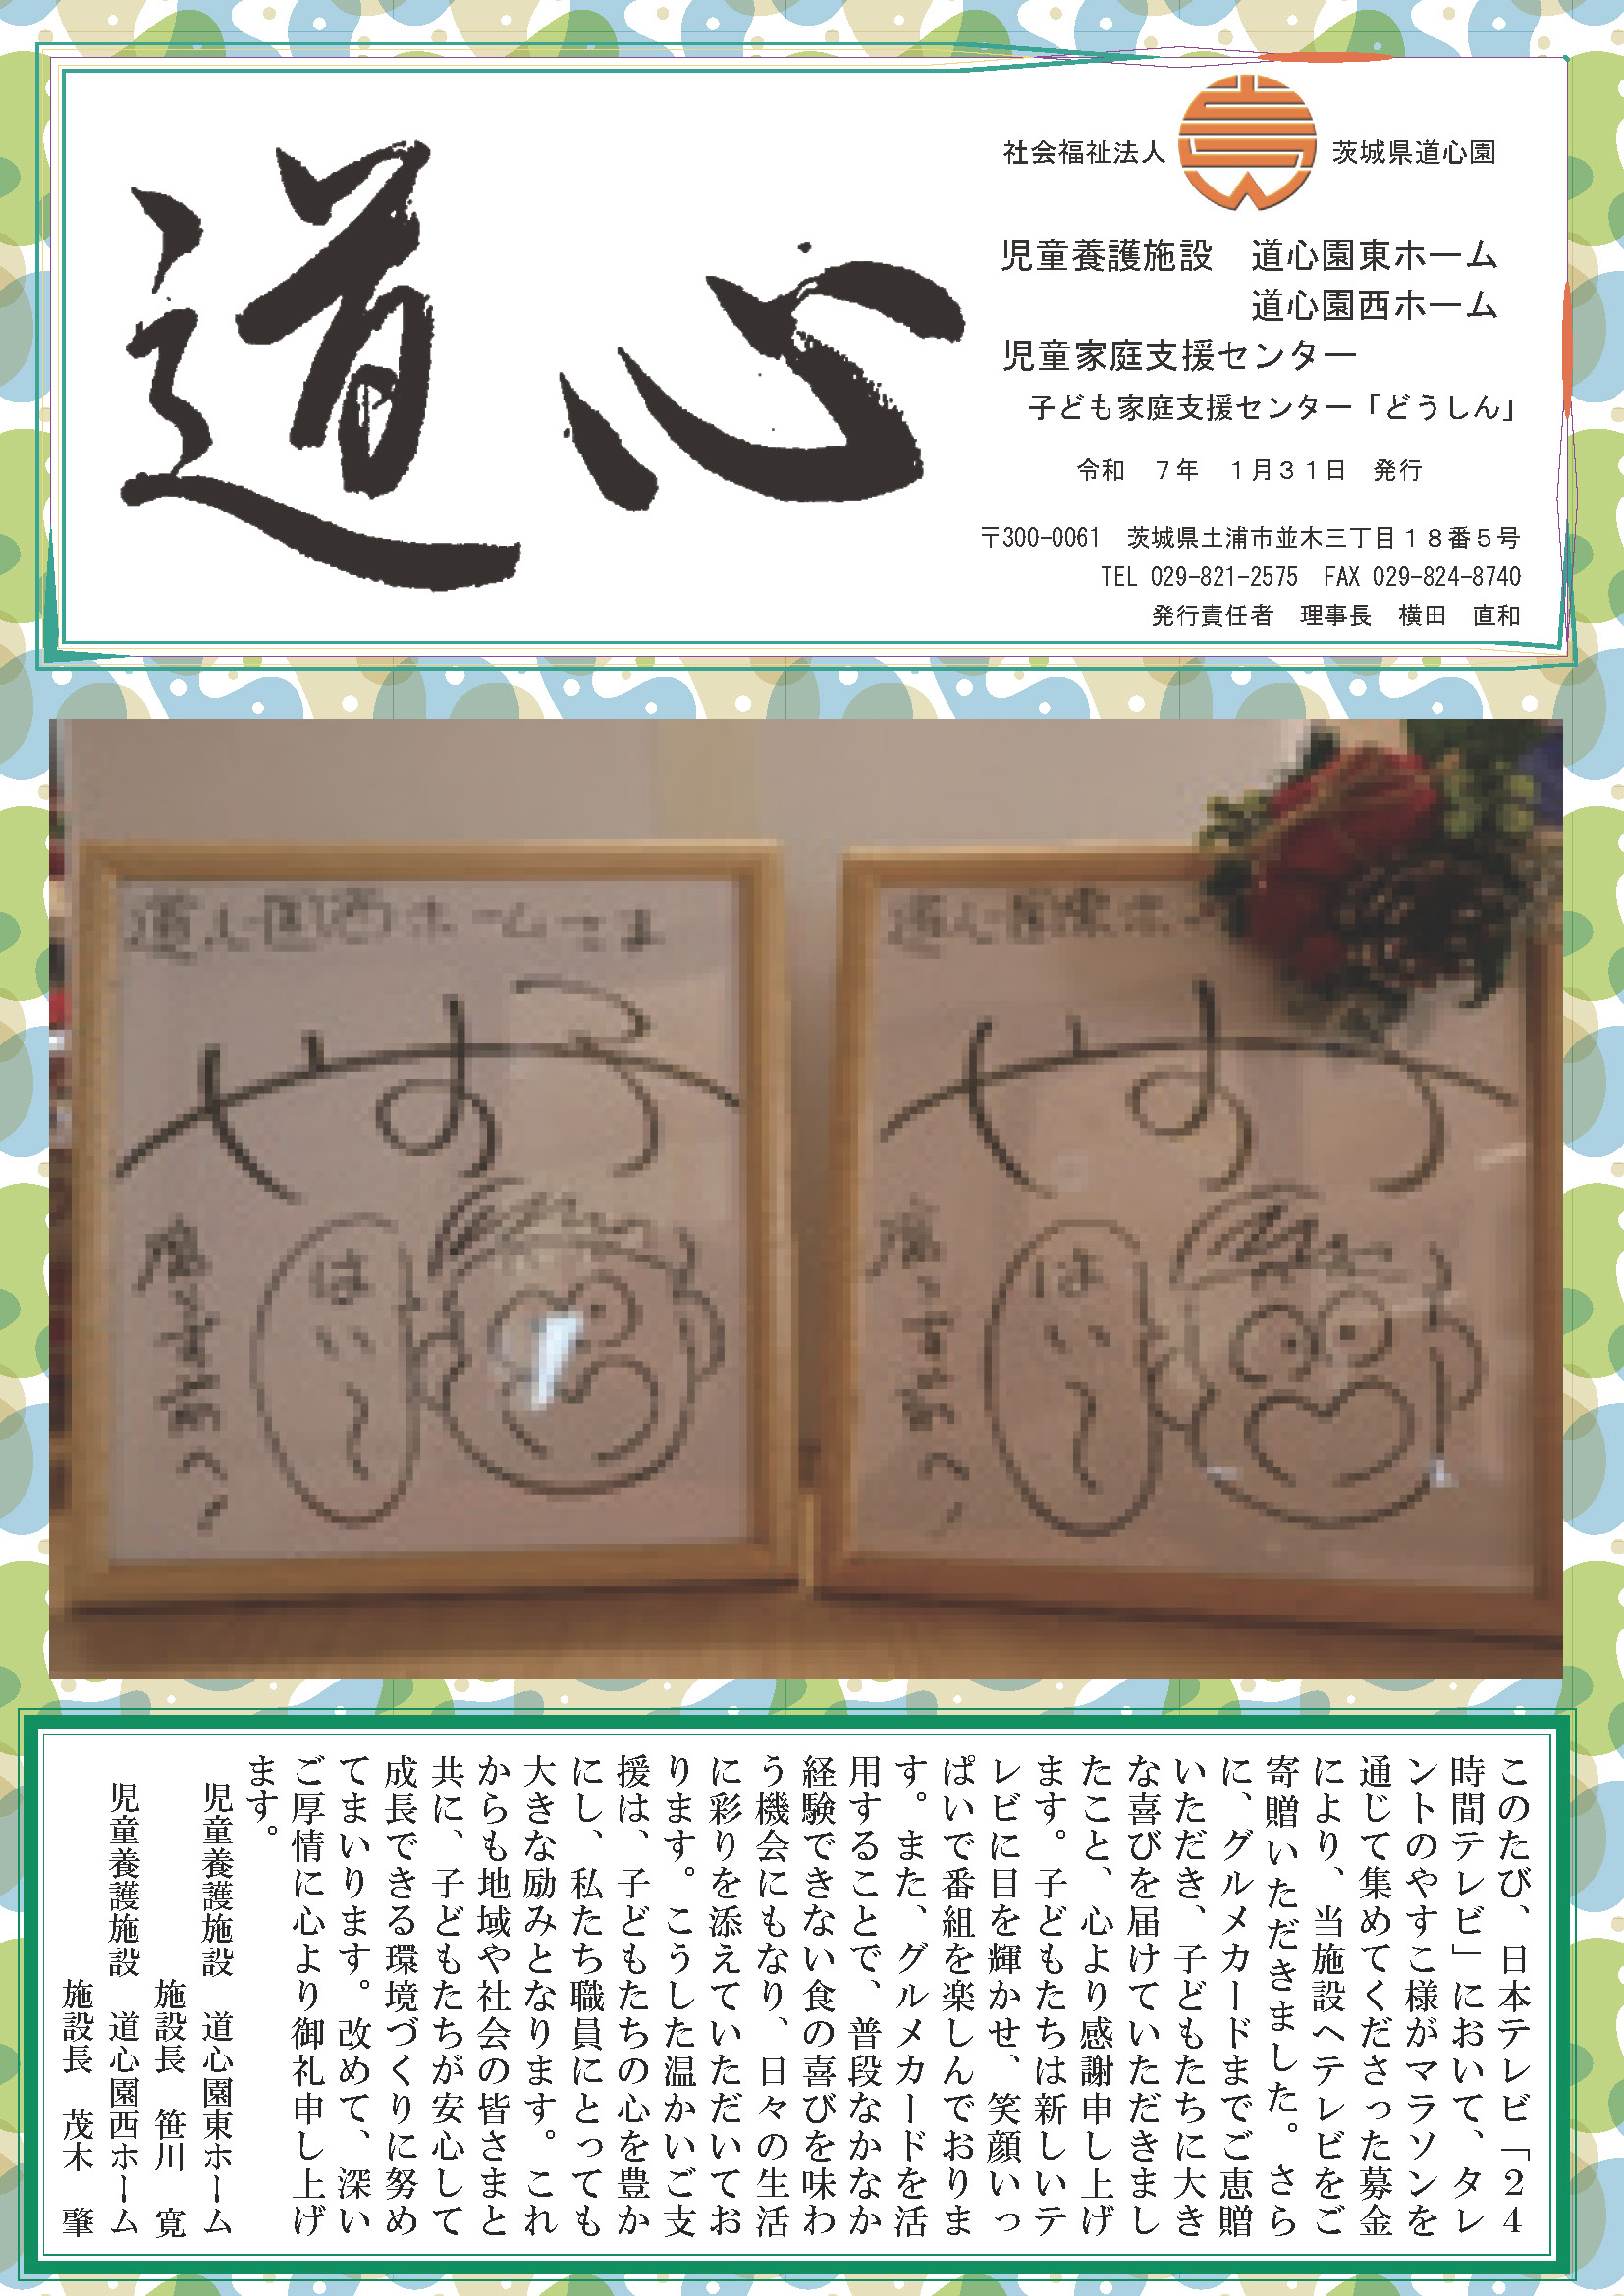 道心
社会福祉法人 茨城県道心園
児童養護施設 道心園東ホーム
道心園西ホーム
児童家庭支援センター
子ども家庭支援センター「どうしん」
令和 7年 1月31日 発行
〒300-0061 茨城県土浦市並木三丁目18番5号
TEL 029-821-2575 FAX 029-824-8740
発行責任者 理事長 横田 直和
道心園西ホームさま
やす子
はい〜
道心園東ホ
やす子
はい〜
このたび、日本テレビ「24
時間テレビ」において、タレ
ントのやすこ様がマラソンを
通じて集めてくださった募金
により、当施設へテレビをご
寄贈いただきました。さら
に、グルメカードまでご恵贈
いただき、子どもたちに大き
な喜びを届けていただきまし
たこと、心より感謝申し上げ
ます。子どもたちは新しいテ
レビに目を輝かせ、笑顔いっ
ぱいで番組を楽しんでおりま
す。また、グルメカードを活
用することで、普段なかなか
経験できない食の喜びを味わ
う機会にもなり、日々の生活
に彩りを添えていただいてお
ります。こうした温かいご支
援は、子どもたちの心を豊か
にし、私たち職員にとっても
大きな励みとなります。これ
からも地域や社会の皆さまと
共に、子どもたちが安心して
成長できる環境づくりに努め
てまいります。改めて、深い
ご厚情に心より御礼申し上げ
ます。
児童養護施設 道心園東ホーム
施設長 笹川 寛
児童養護施設 道心園西ホーム
施設長 茂木 肇